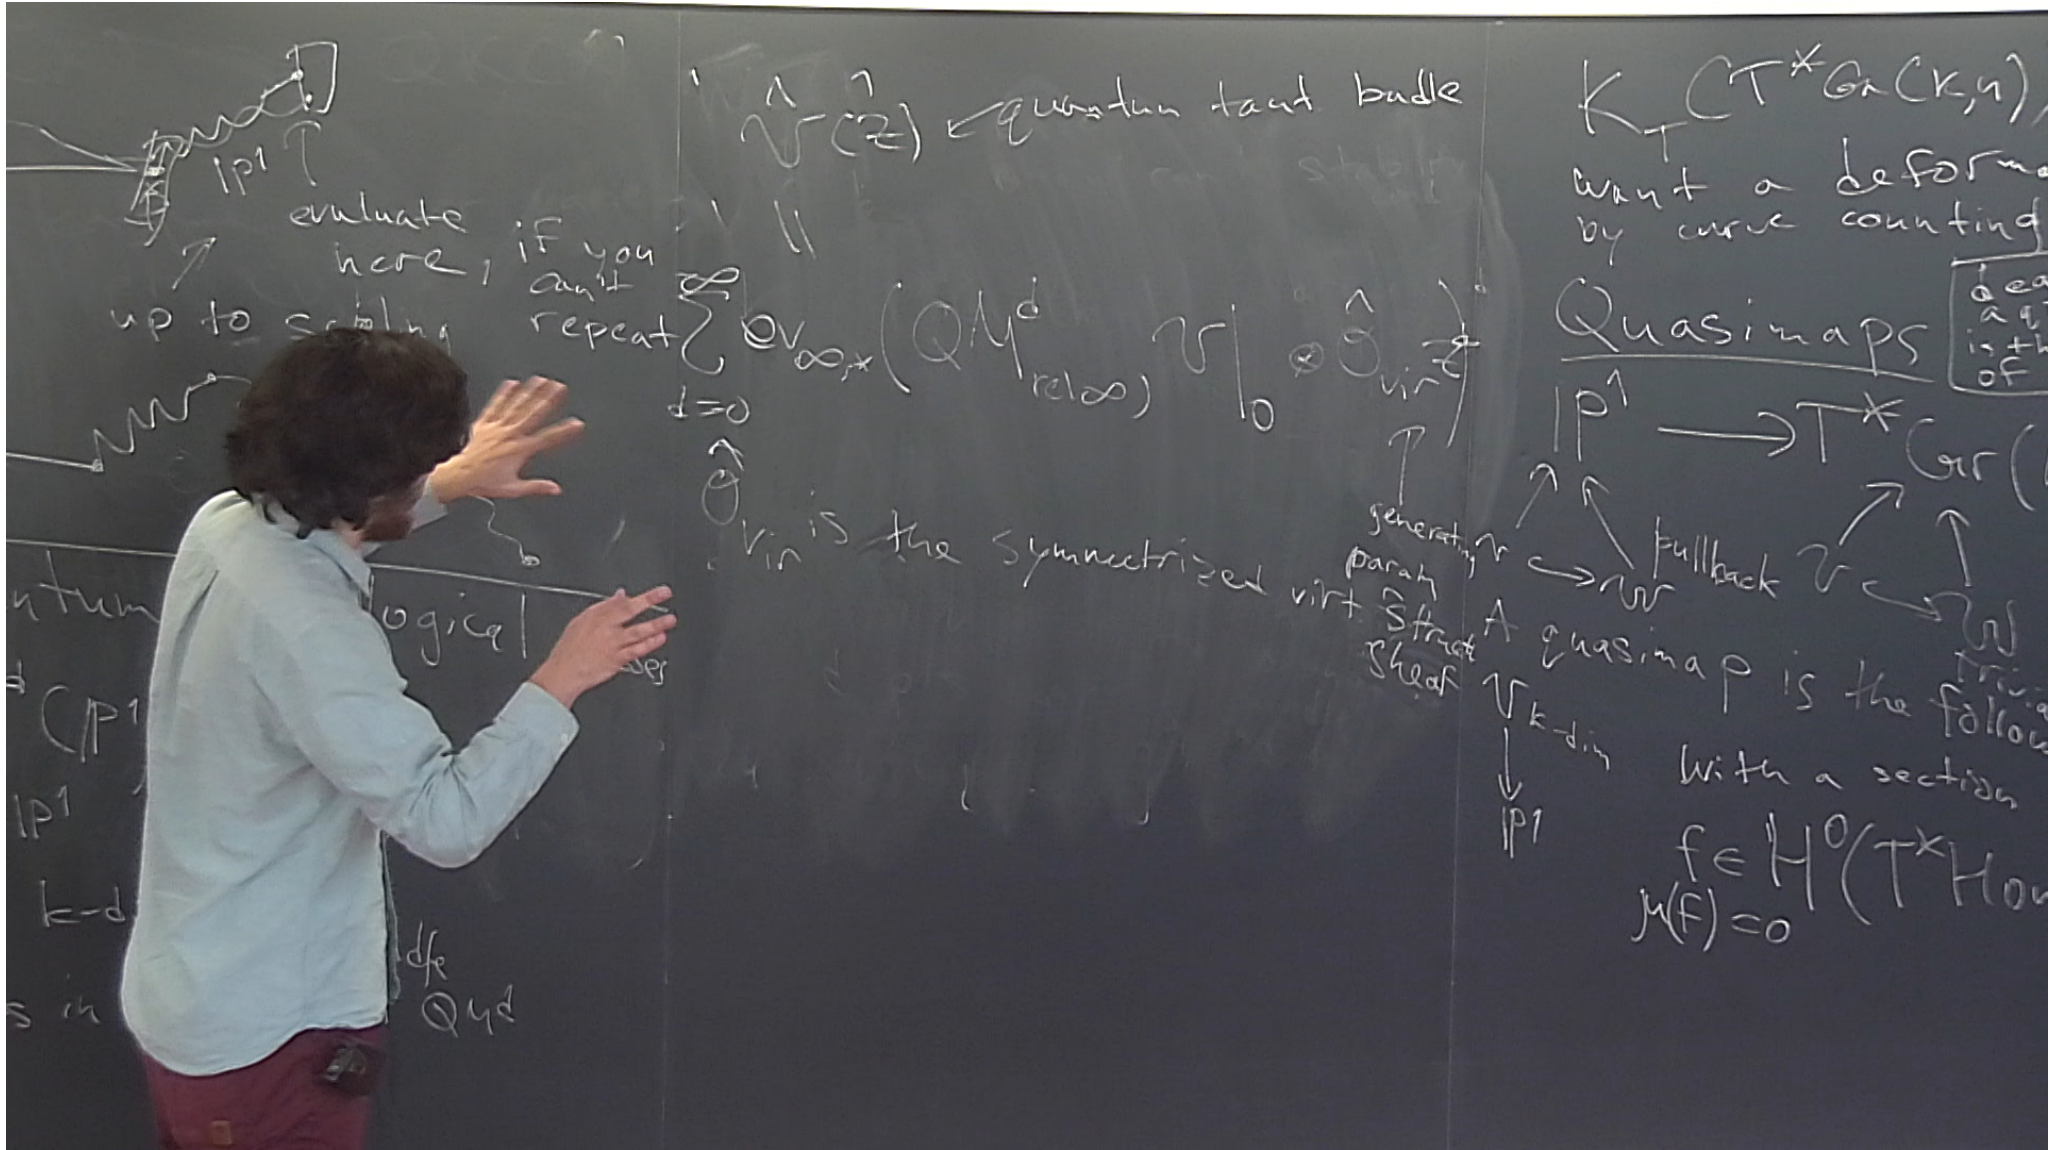 |P¹
evaluate
here, if you
can't
repeat
up to
ntum
ogical
(|P¹
|P¹
k-d
s in
QMd
V̂(ẑ) ← quantum taut bundle
||
∞
Σ ev∞,* (QM^d rel∞, V|₀ ⊗ Ô_vir z^d)
d=0
Ô_vir is the symmetrized virt. struct
sheaf
generating
param
K_T(T*Gr(k,n),
want a deforma
by curve counting
Quasimaps
is th
of
|P¹ → T*Gr(
pullback
V W V W
A quasimap is the follow
V k-dim
↓
|P¹
with a section
f ∈ H⁰(T*Hom
μ(f)=0